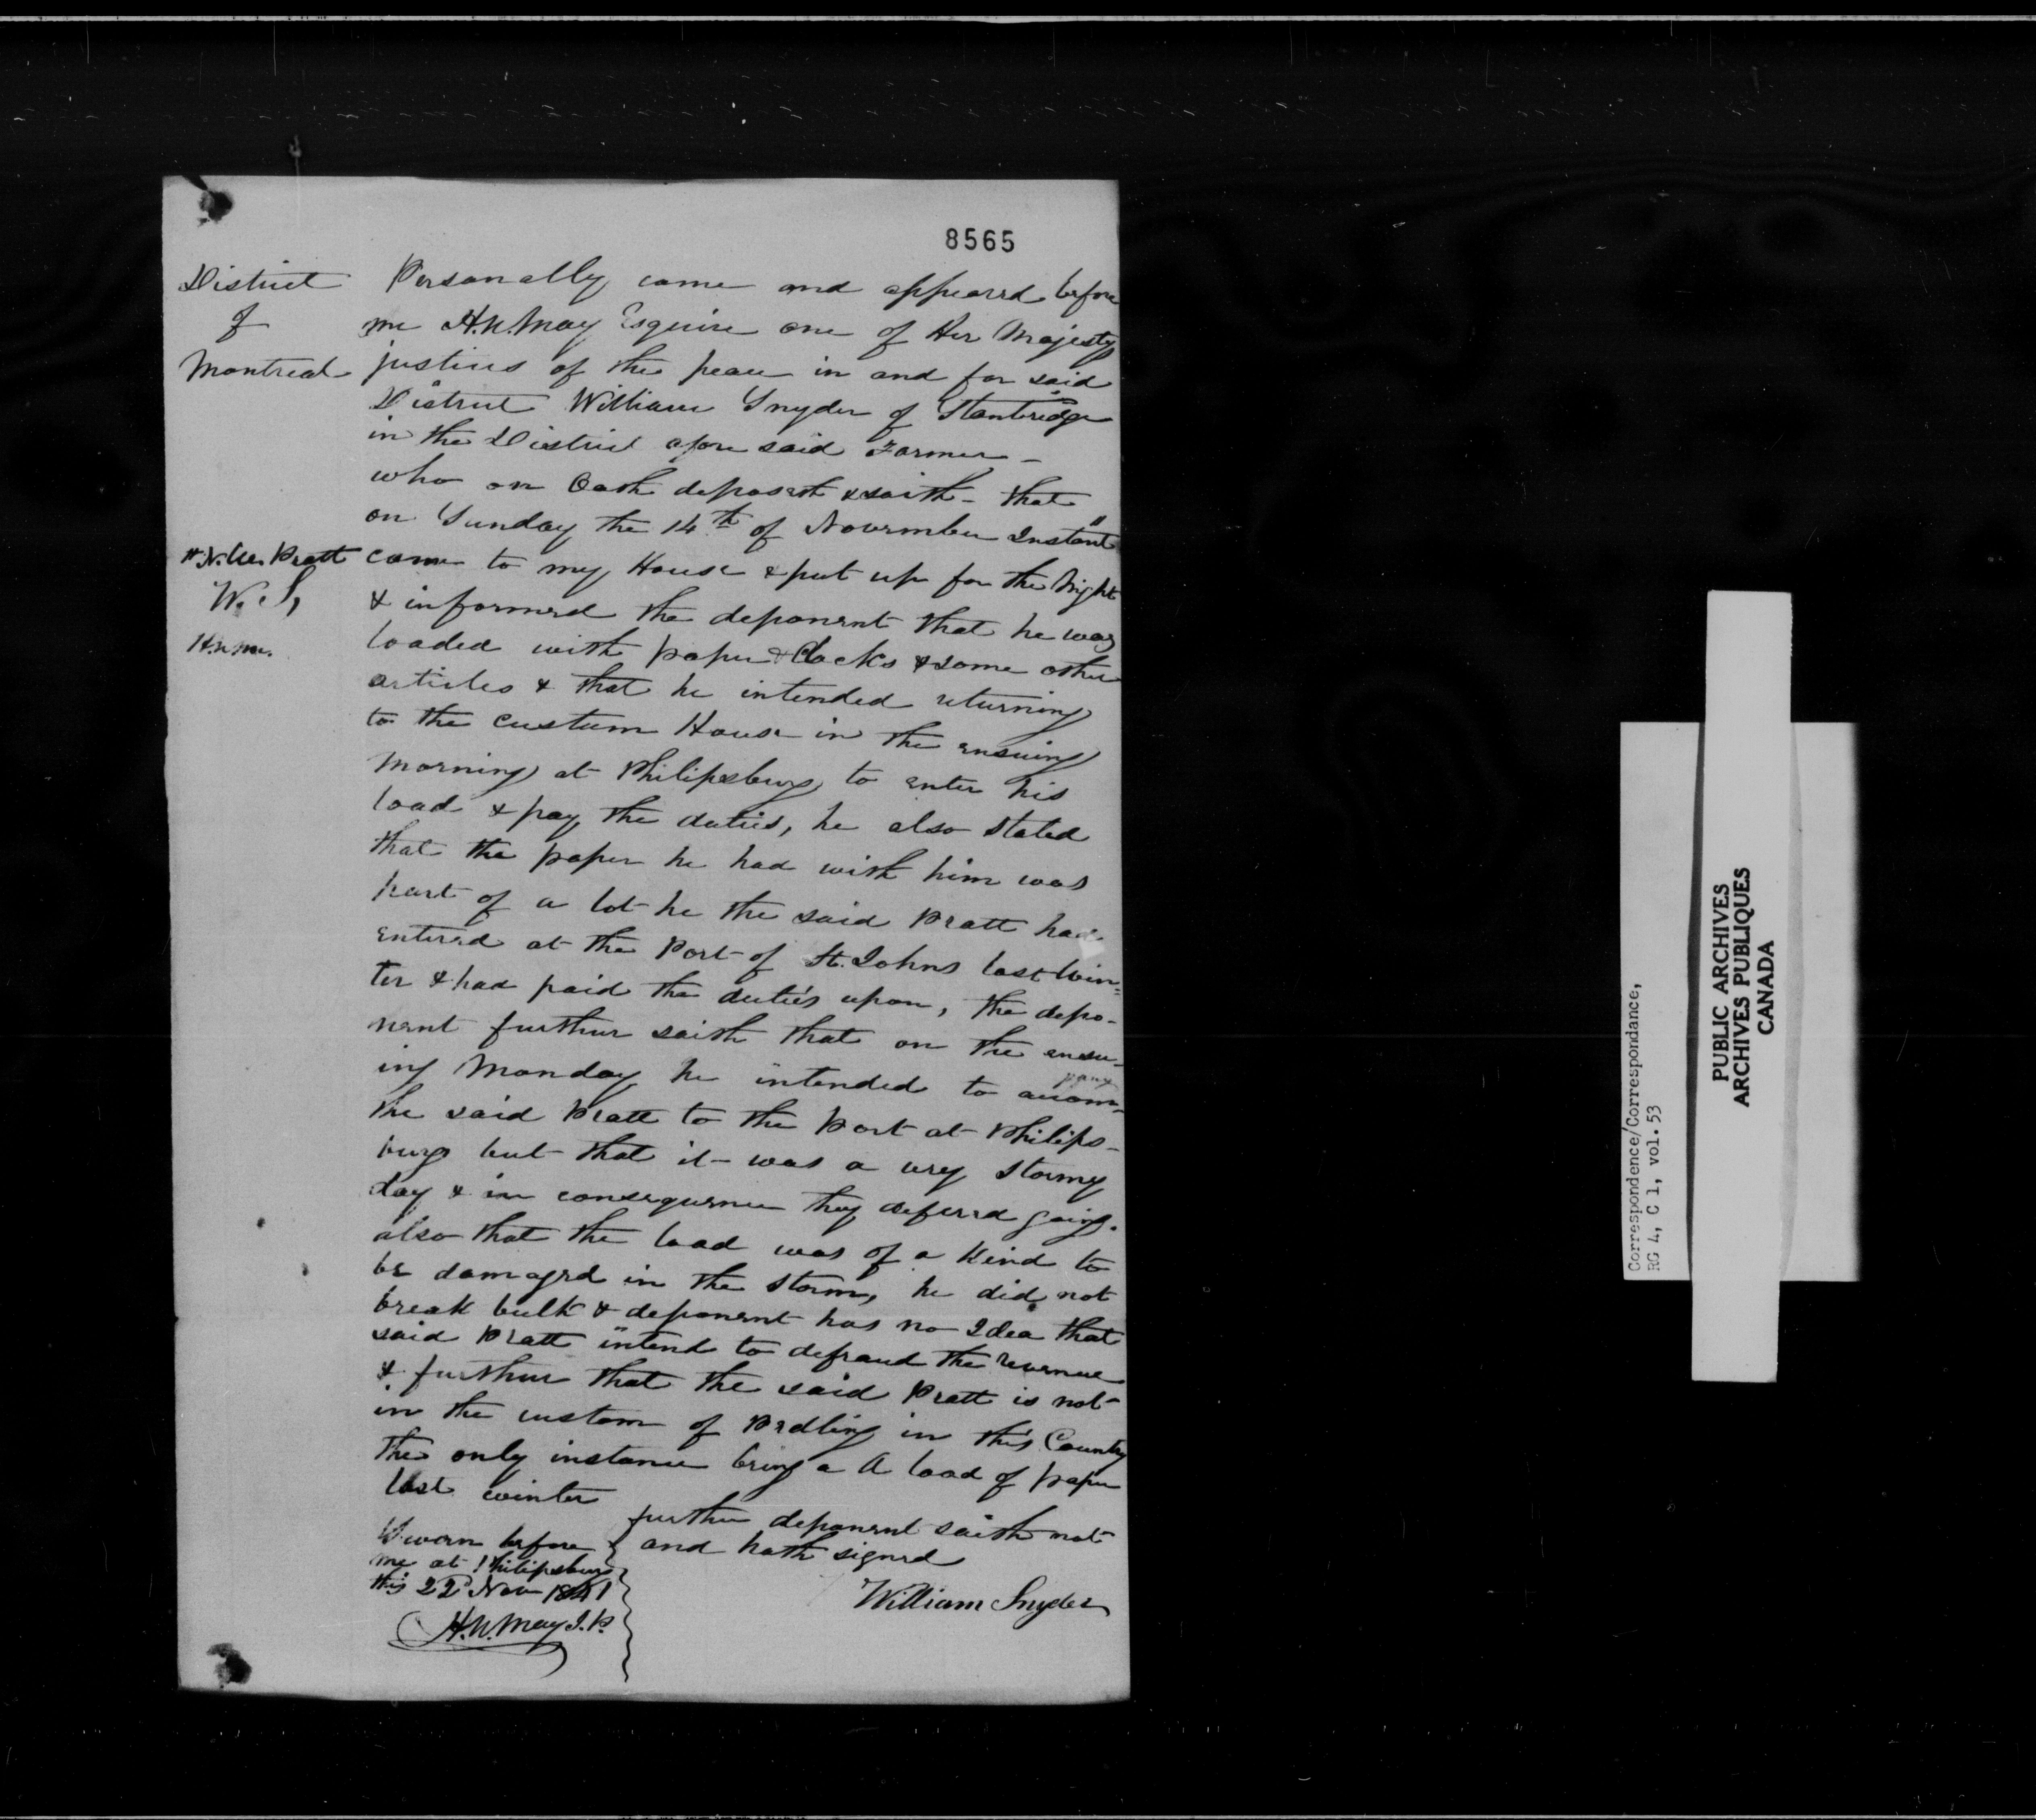 8565
District
of
Montreal
Personally came and appeared before
me H.N. May Esquire one of Her Majestys
justices of the peace in and for said
District William Snyder of Stanbridge
in the District afore said Farmer -
who on Oath deposeth & saith - that
on Sunday the 14th of November Instant "
" N. W. Pratt
W. S,
H.N.M.
came to my House & put up for the Night
& informed the deponent that he was
loaded with paper & Clocks & some other
articles & that he intended returning
to the custum House in the ensuing
morning at Philipsburg to enter his
load & pay the duties, he also stated
that the paper he had with him was
part of a lot he the said Pratt had
entered at the Port of St. Johns last Win=
ter & had paid the duties upon, the depo-
nent further saith that on the ensu-
ing Monday he intended to accom-pany
the said Pratt to the Port at Philips-
burg but that it was a very stormy
day & in consequence they defered going.
also that the load was of a Kind to
be damaged in the storm, he did not
break bulk & deponent has no Idea that
said Pratt intend to defraud the revenue
& further that the said Pratt is not
in the custom of Pedling in this Country
the only instance being a A load of paper
last winter
further deponent saith not
and hath signed
William Snyder
Sworn before
me at Philipsburg
this 22d Nov 1841
H.N. May J.P.
Correspondence/Correspondance,
RG 4, C 1, vol. 53
PUBLIC ARCHIVES
ARCHIVES PUBLIQUES
CANADA